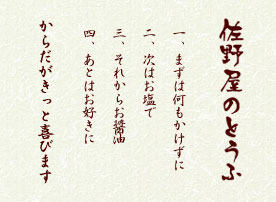 佐野屋のとうふ
一、まずは何もかけずに
二、次はお塩で
三、それからお醤油
四、あとはお好きに
からだがきっと喜びます